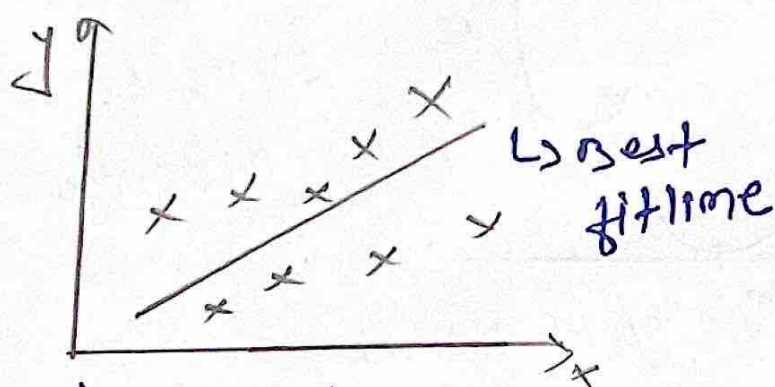 y
↳ Best
fitline
x